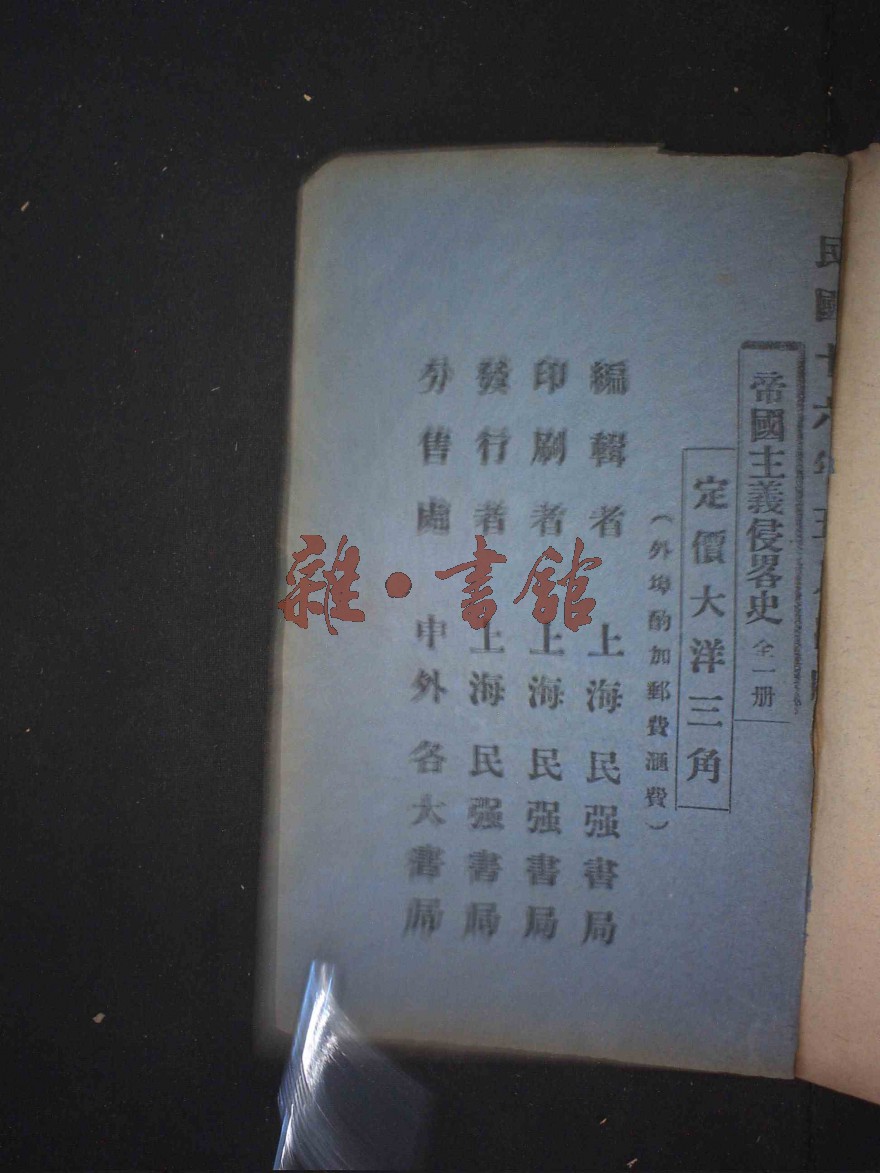 民國十六年五月出版
帝國主義侵畧史 全一册
定價大洋三角
（外埠酌加郵費滙費）
編輯者 上海民强書局
印刷者 上海民强書局
發行者 上海民强書局
分售處 中外各大書局
雜·書館